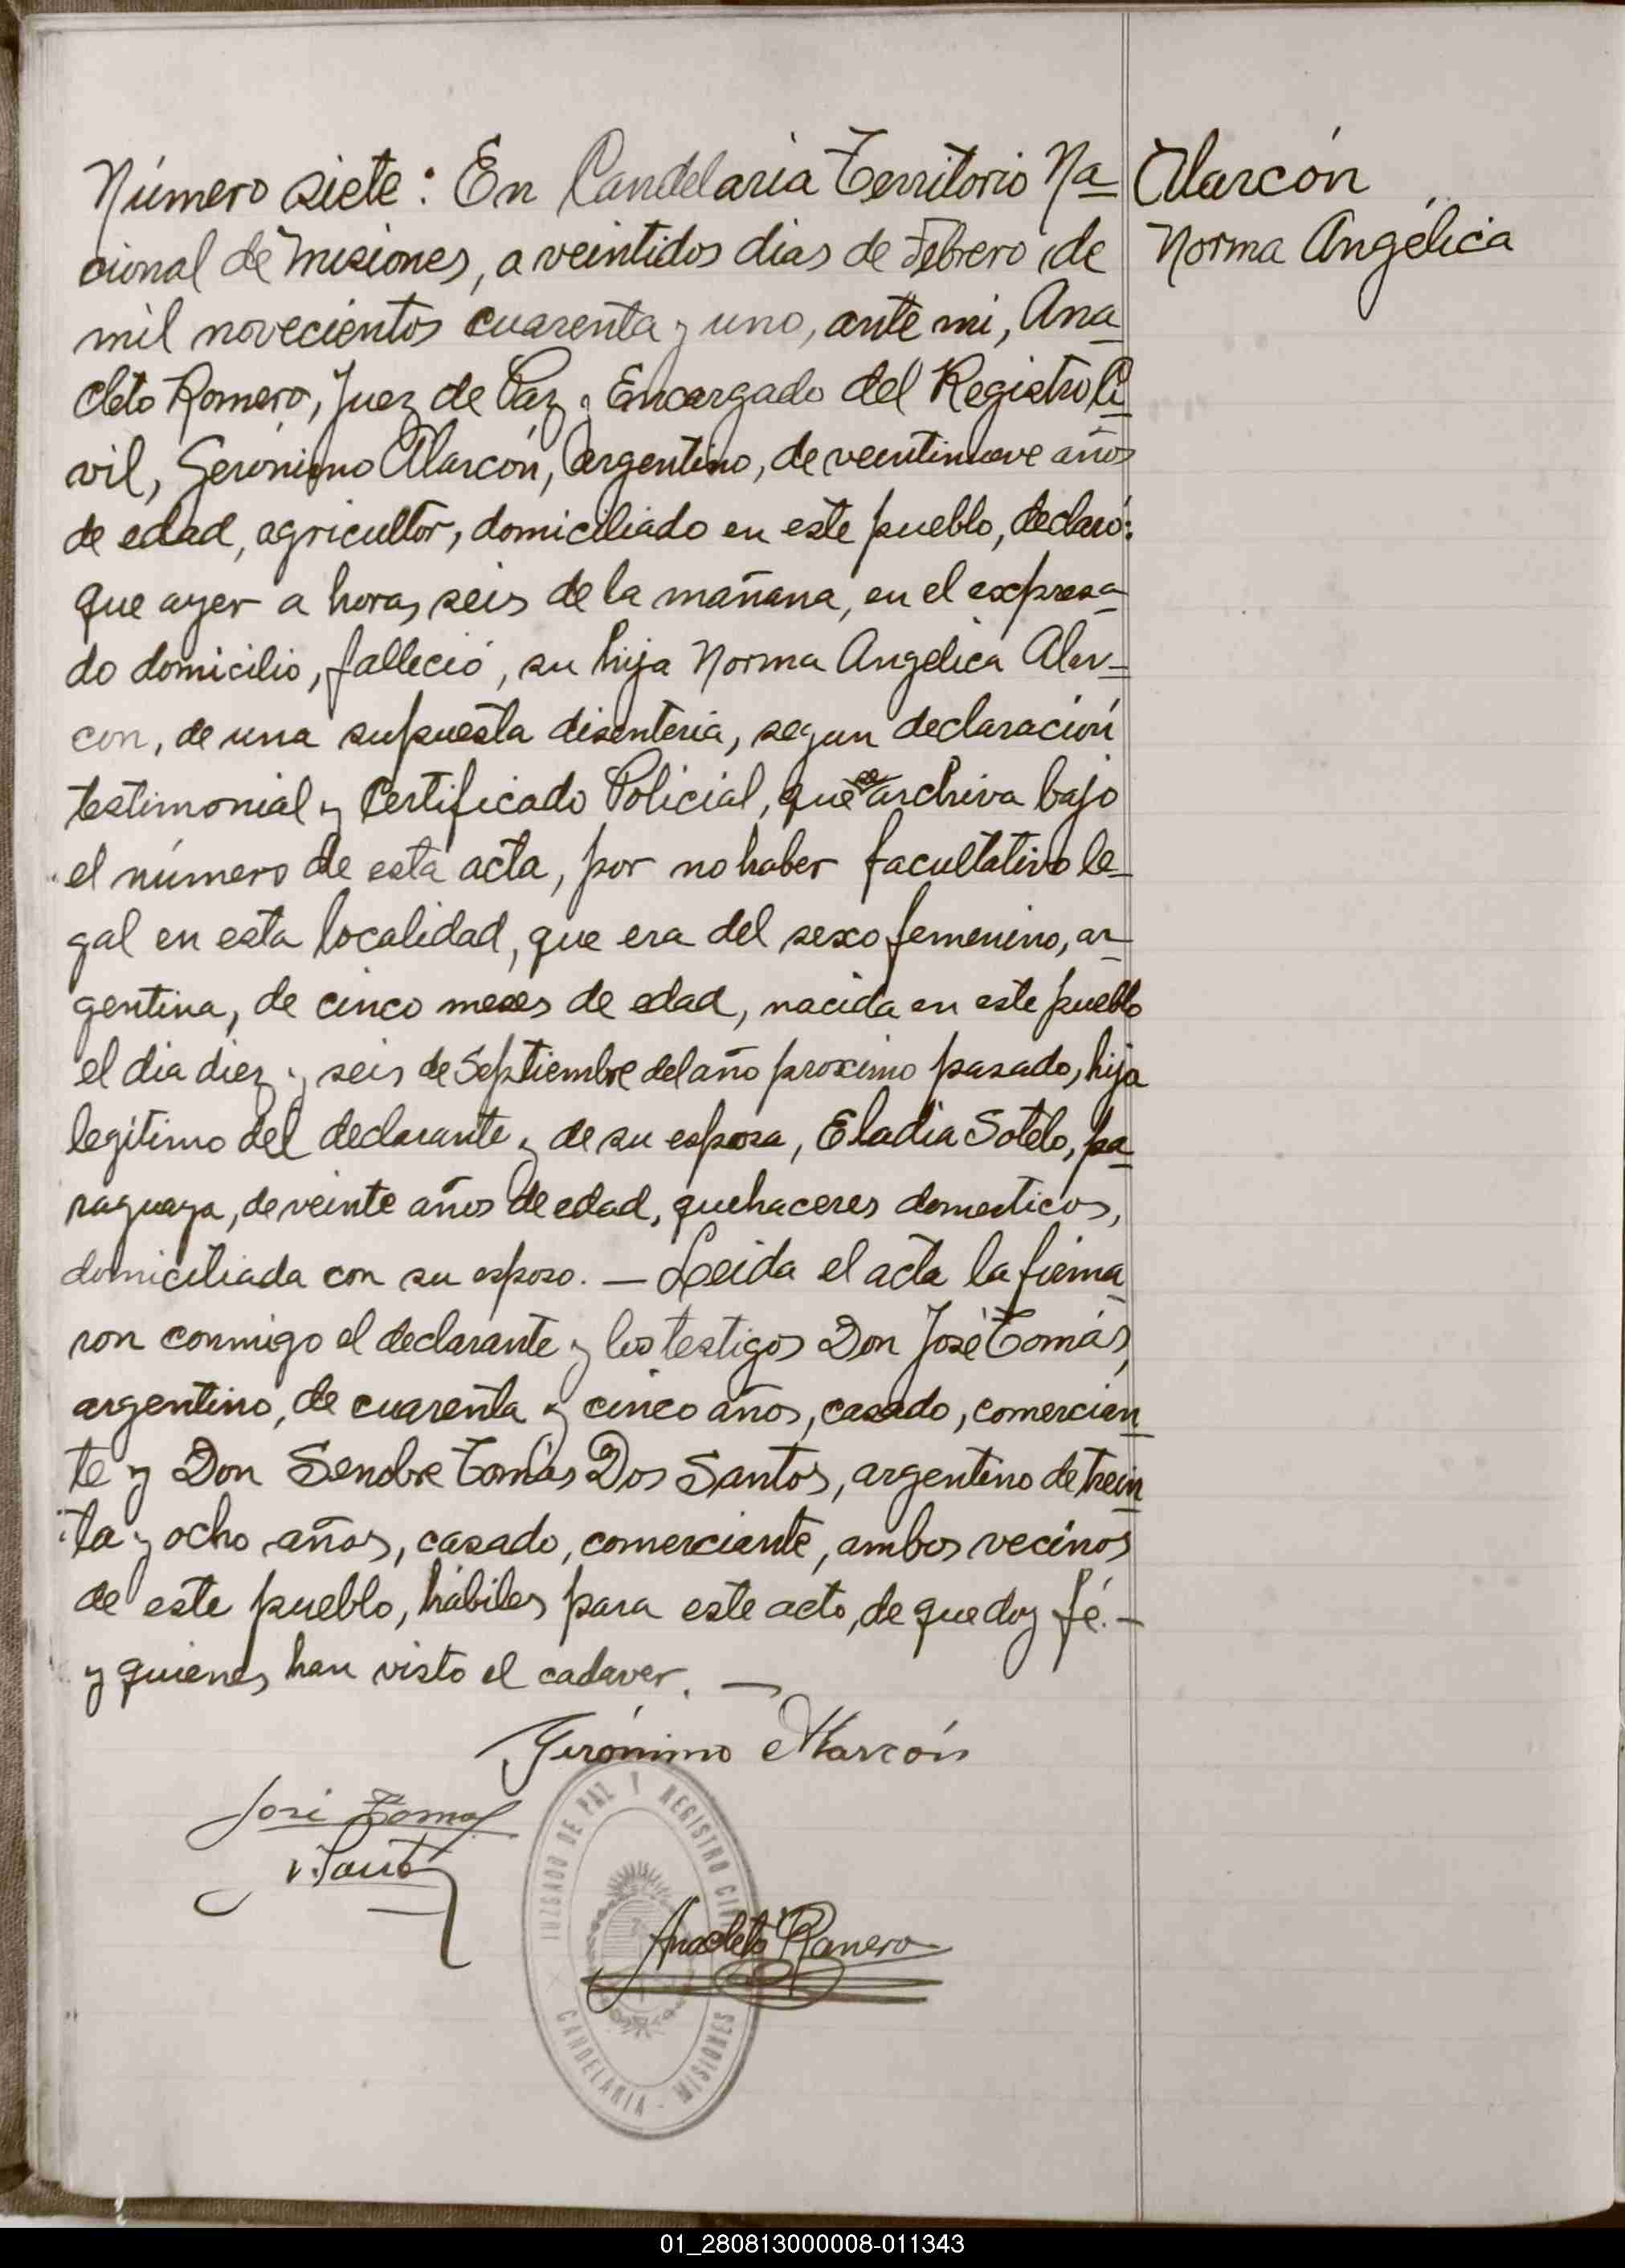 Número siete: En Candelaria Territorio Na-
cional de Misiones, a veintidos dias de Febrero de
mil novecientos cuarenta y uno, ante mi, Ana-
cleto Romero, Juez de Paz y Encargado del Registro Ci-
vil, Gerónimo Alarcón, argentino, de veintinueve años
de edad, agricultor, domiciliado en este pueblo, declaró:
que ayer a horas seis de la mañana, en el expresa-
do domicilio, falleció, su hija Norma Angélica Alar-
con, de una supuesta disenteria, segun declaración
testimonial y Certificado Policial, que se archiva bajo
el número de esta acta, por no haber facultativo le-
gal en esta localidad, que era del sexo femenino, ar-
gentina, de cinco meses de edad, nacida en este pueblo
el dia diez y seis de Septiembre del año proximo pasado, hija
legitimo del declarante y de su esposa, Eladia Sotelo, pa-
raguaya, de veinte años de edad, quehaceres domesticos,
domiciliada con su esposo. — Leida el acta la firma-
ron conmigo el declarante y los testigos Don José Tomás,
argentino, de cuarenta y cinco años, casado, comercian-
te y Don Senobre Tomás Dos Santos, argentino de trein-
ta y ocho años, casado, comerciante, ambos vecinos
de este pueblo, hábiles para este acto, de que doy fé. —
y quienes han visto el cadaver. —
Alarcón
Norma Angélica
Gerónimo Alarcón
José Tomas
Anacleto Romero
JUZGADO DE PAZ Y REGISTRO CIVIL
CANDELARIA - MISIONES
01_280813000008-011343